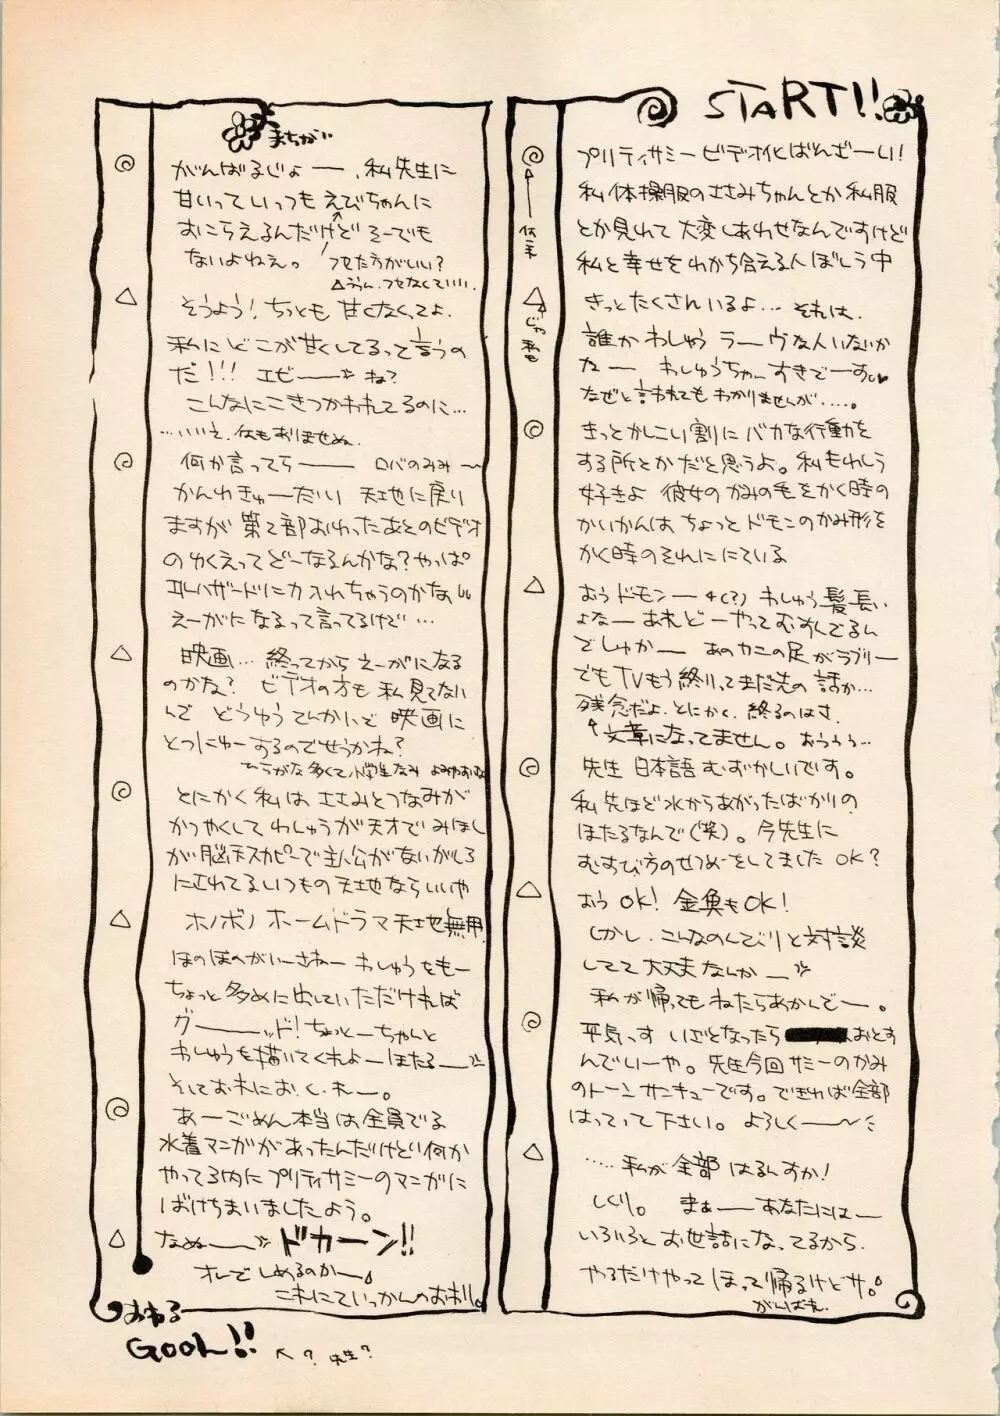 START!!
プリティサミービデオ化ばんざーい!
私体操服のささみちゃんとか私服
とか見れて大変しあわせなんですけど
私と幸せをわかち合える人ぼしう中
きっとたくさんいるよ… それは、
誰かわしゅうラーヴな人いないか
なー わしゅうちゃーんすきでーす♥
なぜと言われてもわかりませんが…。
きっとかしこい割にバカな行動を
する所とかだと思うよ。私もわしう
好きよ 彼女のかみの毛をかく時の
かいかんは、ちょっとドモンのかみ形を
かく時のそれににている
おうドモンー (?) わしゅう髪長い
よなー あれどーやってむすんでるん
でしゅかー あのカニの足がラブリー
でもTVもう終りってまだ先の話か…
残念だよ、とにかく、終るのはさ、
↑文章になってません。おうぅぅ…
先生 日本語むずかしいです。
私先ほど水からあがったばかりの
ほたるなんで(笑)。今先生に
むすび方のせつめーをしてました OK?
おうOK!金魚もOK!
しかし、こんなのんびりと対談
してて大丈夫なんかー
私が帰ってもねたらあかんでー。
平気っす いざとなったら おとす
んでいーや。先生今回サミーのかみ
のトーンサンキューです。できれば全部
はってって下さい。よろしくー〜
……私が全部はるんすか!
しくり。 まぁーあなたにはー
いろいろとお世話になってるから、
やるだけやってほって帰るけどサ。
がんばれ
じゃ私も
まちがい
がんばるじょー、私先生に
甘いっていっつもえびちゃんに
おこらえるんだけどそーでも
ないよねぇ。 フセた方がいい?
△ううん、フセなくていい。
そうよう!ちっとも甘くなくってよ。
私にどこが甘くしてるって言うの
だ!!! エビーー ね?
こんなにこきつかわれてるのに…
…いいえ、何もありませぬ
何か言ってらーー ロバのみみ〜
かんわきゅーだい 天地に戻り
ますが第2部おわったあとのビデオ
のゆくえってどーなるんかな?やっぱ
エルハザードに力入れちゃうのかな
えーがになるって言ってるけど…
映画… 終ってからえーがになる
のかな? ビデオの方も私見てない
んで どうゆうてんかいで映画に
とつにゅーするのでせうかね?
ひらがな多くて小学生なみ よみやすいね
とにかく私はささみとつなみが
かつやくしてわしゅうが天才でみほし
が脳天スカピーで主人公がないがしろ
にされてるいつもの天地ならいいや
ホノボノホームドラマ天地無用
ほのぼのがいーさねー わしゅうをもー
ちょっと多めに出していただければ
グーーッド!ちぃとーちゃんと
わしゅうを描いてくれよーほたるー
そしてお木にお・く・れー。
あーごめん本当は全員でる
水着マンガがあったんだけどい何か
やってる内にプリティサミーのマンガに
ばけちまいましたよう。
なぬーー ドカーン!!
オレでしめるのかー
これにていっかんのおわり。
おわる
GOOL!! ↖? 先生?